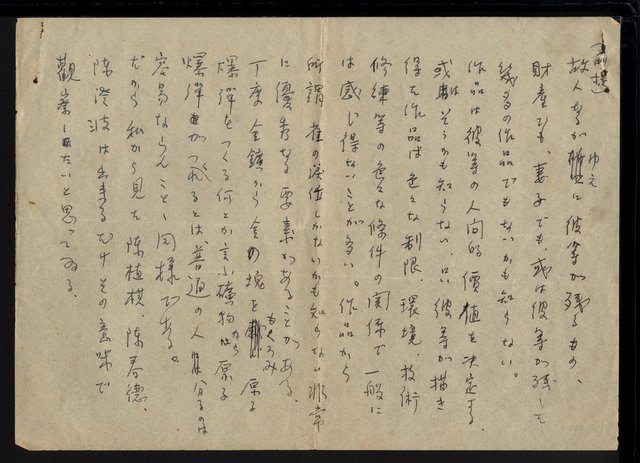 （前提）
故人なるが ゆえ に彼等が残るもの、
財産でも、妻子でも、或は彼等が残した
幾多の作品でもないかも知らない。
作品は彼等の人間的價値を決定する。
或はそうかも知らない、只彼等が描き
得た作品は色々な制限、環境、技術
修練等の色々な條件の関係で一般に
は感じ得ないことが多い。作品から
所謂雀の涙位しかないかも知らない非常
に優秀なる要素があることがある。
丁度金鑛から金の塊を もくろみ 原子
爆彈をつくる何とか言ふ礦物から原子
爆彈がつくれるとは普通の人に分るのは
容易ならんことゝ同様である。
だから私から見た陳植棋、陳春德、
陳澄波は出来るだけその意味で
觀察したいと思ってゐる。